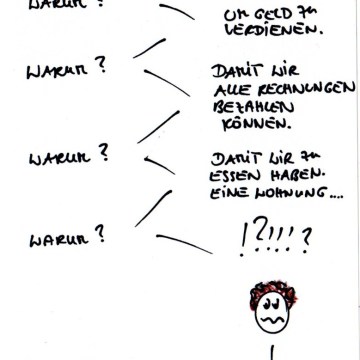 WARUM?
UM GELD ZU
VERDIENEN.
WARUM?
DAMIT WIR
ALLE RECHNUNGEN
BEZAHLEN
KÖNNEN.
WARUM?
DAMIT WIR ZU
ESSEN HABEN.
EINE WOHNUNG....
WARUM?
!?!!!?